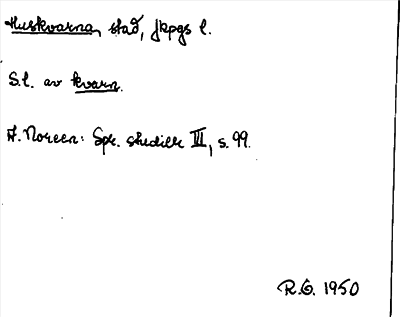 Huskvarna, stad, Jkpgs l.
S.l. av kvarn.
A. Noreen: Spr. studier III, s. 99.
R.G. 1950